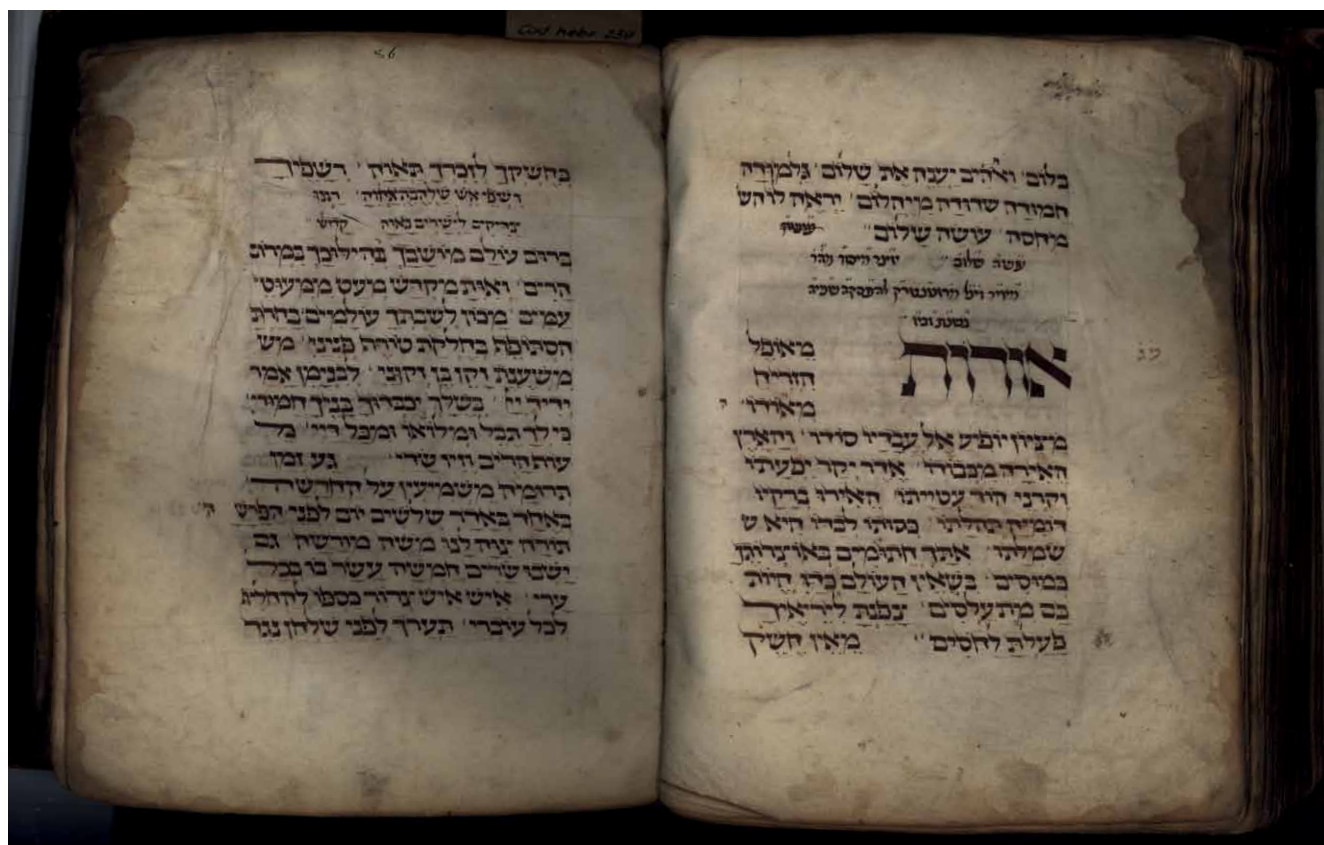 Cod. hebr. 239
בלום׳ ואלהים יענה את שלום׳ גלמודה
חמודה שדודה מן יהלום׳ יראה לו הש
מחסה׳ עושה שלום׳׳
עשה שלום׳׳ יוצר
אורות מאופל
הזריח
מאורו׳
מציון יופיע אל עבדיו סודו׳ והארץ
האירה מכבודו׳ אדר יקר יפעתו
וקרני הוד עטייתו׳ האירו ברקיו
דומיה תהלתו׳ כסותו לבדו היא ש
שמלתו׳ אתך חתומים באוצרותך
כמוסים׳ בשאין העולם בהו היות
בם מתעלסים׳ צפנת ליריאיך
פעלת לחסים׳׳ מאין חשיק
עג
26
בחשקך לזכרך תאוה׳ רשפיך
רשפי אש שלהבת אחוה׳ רננו
צדיקים לישרים נאוה׳ קדוש׳׳
ברום עולם מושבך בהילוכך במרום
הרים׳ ואות מקדש מעט ממעוטי
עמים׳ מכון לשבתך עולמים בחרת
הסתופף בחלקת טורה פניני׳ מש
משענת זקן בן זקוני׳ לבנימן אמר
ידיד יי׳ בשלך יכבדוך בניך חמודי׳
כי לך תבל ומלואו ומכל דיי׳ בל
עות הריב וזיו שדי׳ גע זמן
תרומה משמיעין על החדשה׳
באחד באדר שלשים יום לפני הפרש
תורה צוה לנו משה מורשה׳ גם
ישבו שרים חמשה עשר בו בכל
ערי׳ איש איש צרור כספו להחליף
לכל עוברי׳ תערך לפני שלחן נגד